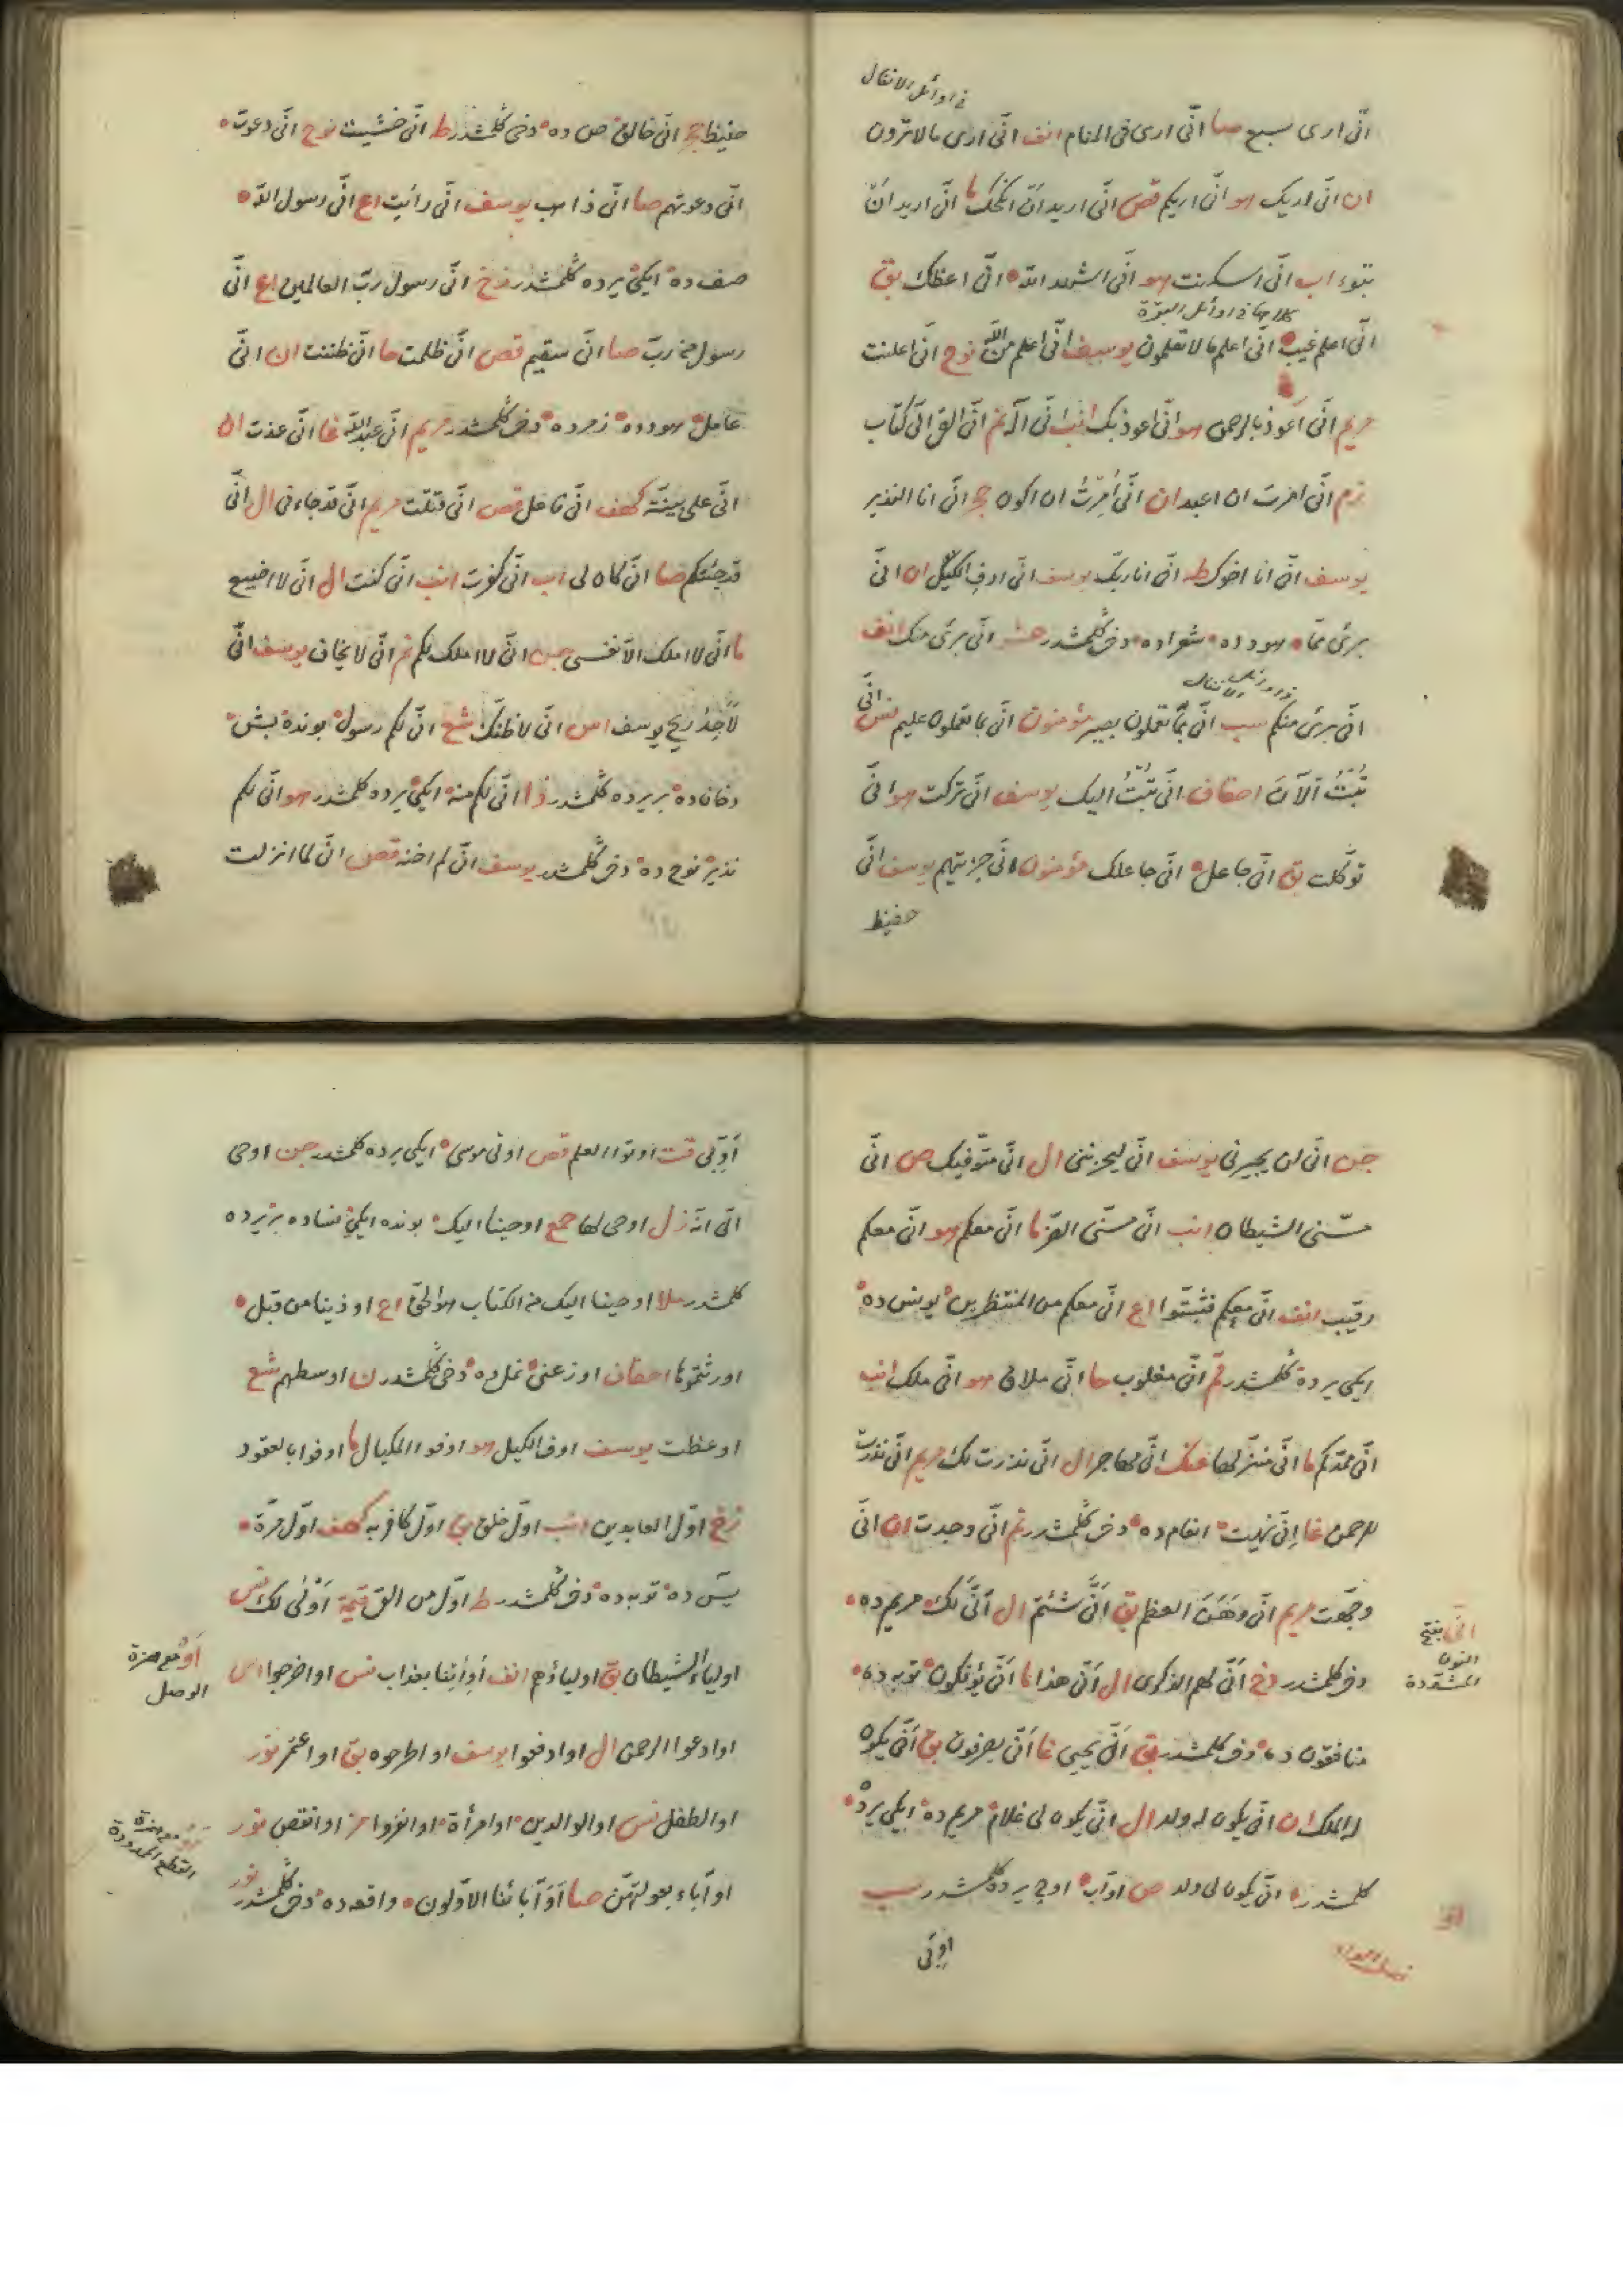 في اوائل الانفال
انّى ارى سبع صا انّى ارى فى المنام انف انّى ارى مالا ترون
ان انّى اريك هو انّى اريكم قص انّى اريد ان انكحك ما انّى اريد ان
تبوء اب انّى اسكنت هو انّى اشهد الله انّى اعظك بق
كلاهما في اوائل البقرة
انّى اعلم غيب انّى اعلم مالا تعلمون يوسف انّى اعلم من الله نوح انّى اعلنت
مريم انّى اعوذ بالرحمن هو انّى اعوذ بك انب انّى اله نم انّى القى الىّ كتاب
زم انّى امرت ان اعبد ان انّى امرت ان اكون حج انّى انا النذير
يوسف انّى انا اخوك طه انّى انا ربك يوسف انّى اوف الكيل ان انّى
برئ ممّا هودده شعراده دخى كلمشدر حشر انّى برئ منك انف
انّى برئ منكم سب انّى بما تعملون بصير مؤمنون انّى بما تعملون عليم نس انّى
تبت الآن احقاف انّى تبت اليك يوسف انّى تركت هو انّى
توكلت بق انّى جاعل انّى جاعلك مؤمنون انّى جزيتهم يوسف انّى
حفيظ
حفيظ حج انّى خالق ص ده دخى كلمشدر ط انّى خشيت نوح انّى دعوت
انّى دعوتهم صا انّى ذاهب يوسف انّى رأيت اع انّى رسول الله
صف ده ايكى يرده كلمشدر زخ انّى رسول ربّ العالمين اع انّى
رسول من ربّ صا انّى سقيم قص انّى ظلمت حا انّى ظننت ان انّى
عامل هودده زمرده دخى كلمشدر مريم انّى عبد الله غا انّى عذت ان
انّى على بيّنة كهف انّى فاعل قص انّى قتلت مريم انّى قد جاءنى ال انّى
قد جئتكم صا انّى كان لى اب انّى كفرت انب انّى كنت ال انّى لا اضيع
ما انّى لا املك الا نفسى جن انّى لا املك لكم نم انّى لا يخاف يوسف انّى
لاجد ريح يوسف اس انّى لاظنّك شع انّى لكم رسول بونده بش
دخانده بر يرده كلمشدر ذا انّى لكم منه ايكى يرده كلمشدر هو انّى لكم
نذير نوح ده دخى كلمشدر يوسف انّى لم اخنه قص انّى لما انزلت
جن انّى لن يجيرنى يوسف انّى ليحزننى ال انّى متوفيك ص انّى
مسّنى الشيطان انب انّى مسّنى الضرّ ما انّى معكم هو انّى معكم
رقيب انف انّى معكم فثبّتوا اع انّى معكم من المنتظرين يونس ده
ايكى يرده كلمشدر قم انّى مغلوب حا انّى ملاق هو انّى ملك انب
انّى ممدّكم ما انّى منزّلها عنك انّى مهاجر ال انّى نذرت لك مريم انّى نذرت
للرحمن غا انّى نهيت انعام ده دخى كلمشدر نم انّى وجدت ان انّى
وجّهت مريم انّى وهن العظم بق انّى شئتم ال انّى لك مريم ده
دخى كلمشدر دخ انّى لهم الذكرى ال انّى هذا ما انّى يؤفكون توبه ده
منافقون ده دخى كلمشدر بق انّى يحيى غا انّى يصرفون بق انّى يكون
له الملك ان انّى يكون له ولد ال انّى يكون لى غلام مريم ده ايكى يرده
كلمشدر انّى يكون لى ولد ص اوّاب اوچ يرده كلمشدر سب
انّى بفتح
النون
المشدّدة
فصل الواو
اوّبى
اوّبى قت اوتوا العلم قص اوتى موسى ايكى يرده كلمشدر جن اوحى
الىّ انّه زل اوحى لها حمع اوحينا اليك بونده ايكى نساده بر يرده
كلمشدر ملا اوحينا اليك من الكتاب هو الحق اع اوذينا من قبل
اورثتموها احقاف اوزعنى نمل ده دخى كلمشدر ن اوسطهم شع
اوعظت يوسف اوف الكيل هو اوفوا المكيال ما اوفوا بالعقود
زخ اوّل العابدين انب اوّل خلق بق اوّل كافر به كهف اوّل مرّة
يس ده توبه ده دخى كلمشدر ط اوّل من القى قيمة اولى لك نس
اولياء الشيطان بق اولياؤهم انف أو ائتنا بعذاب نس او اخرجوا اس
او ادعوا الرحمن ال او ادفعوا يوسف او اطرحوه بق او اعتمر نور
او الطفل نس او الوالدين او امرأة او انفروا مز او انقص نور
او آباء بعولتهنّ صا أو آباؤنا الاوّلون واقعه ده دخى كلمشدر نور
أو مع همزة
الوصل
القطع الممدودة